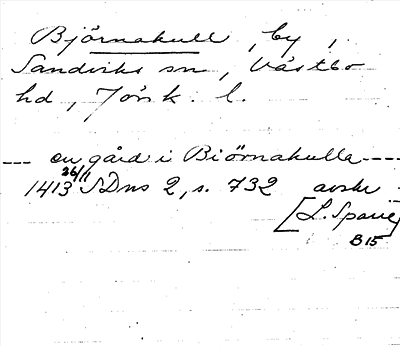 Björnakull, by,
Sandviks sn, Västbo
hd, Jönk. l.
--- en gård i Biörnakulla ----
1413 26/11 SDns 2, s. 732 avskr
[L. Sparre]
B15